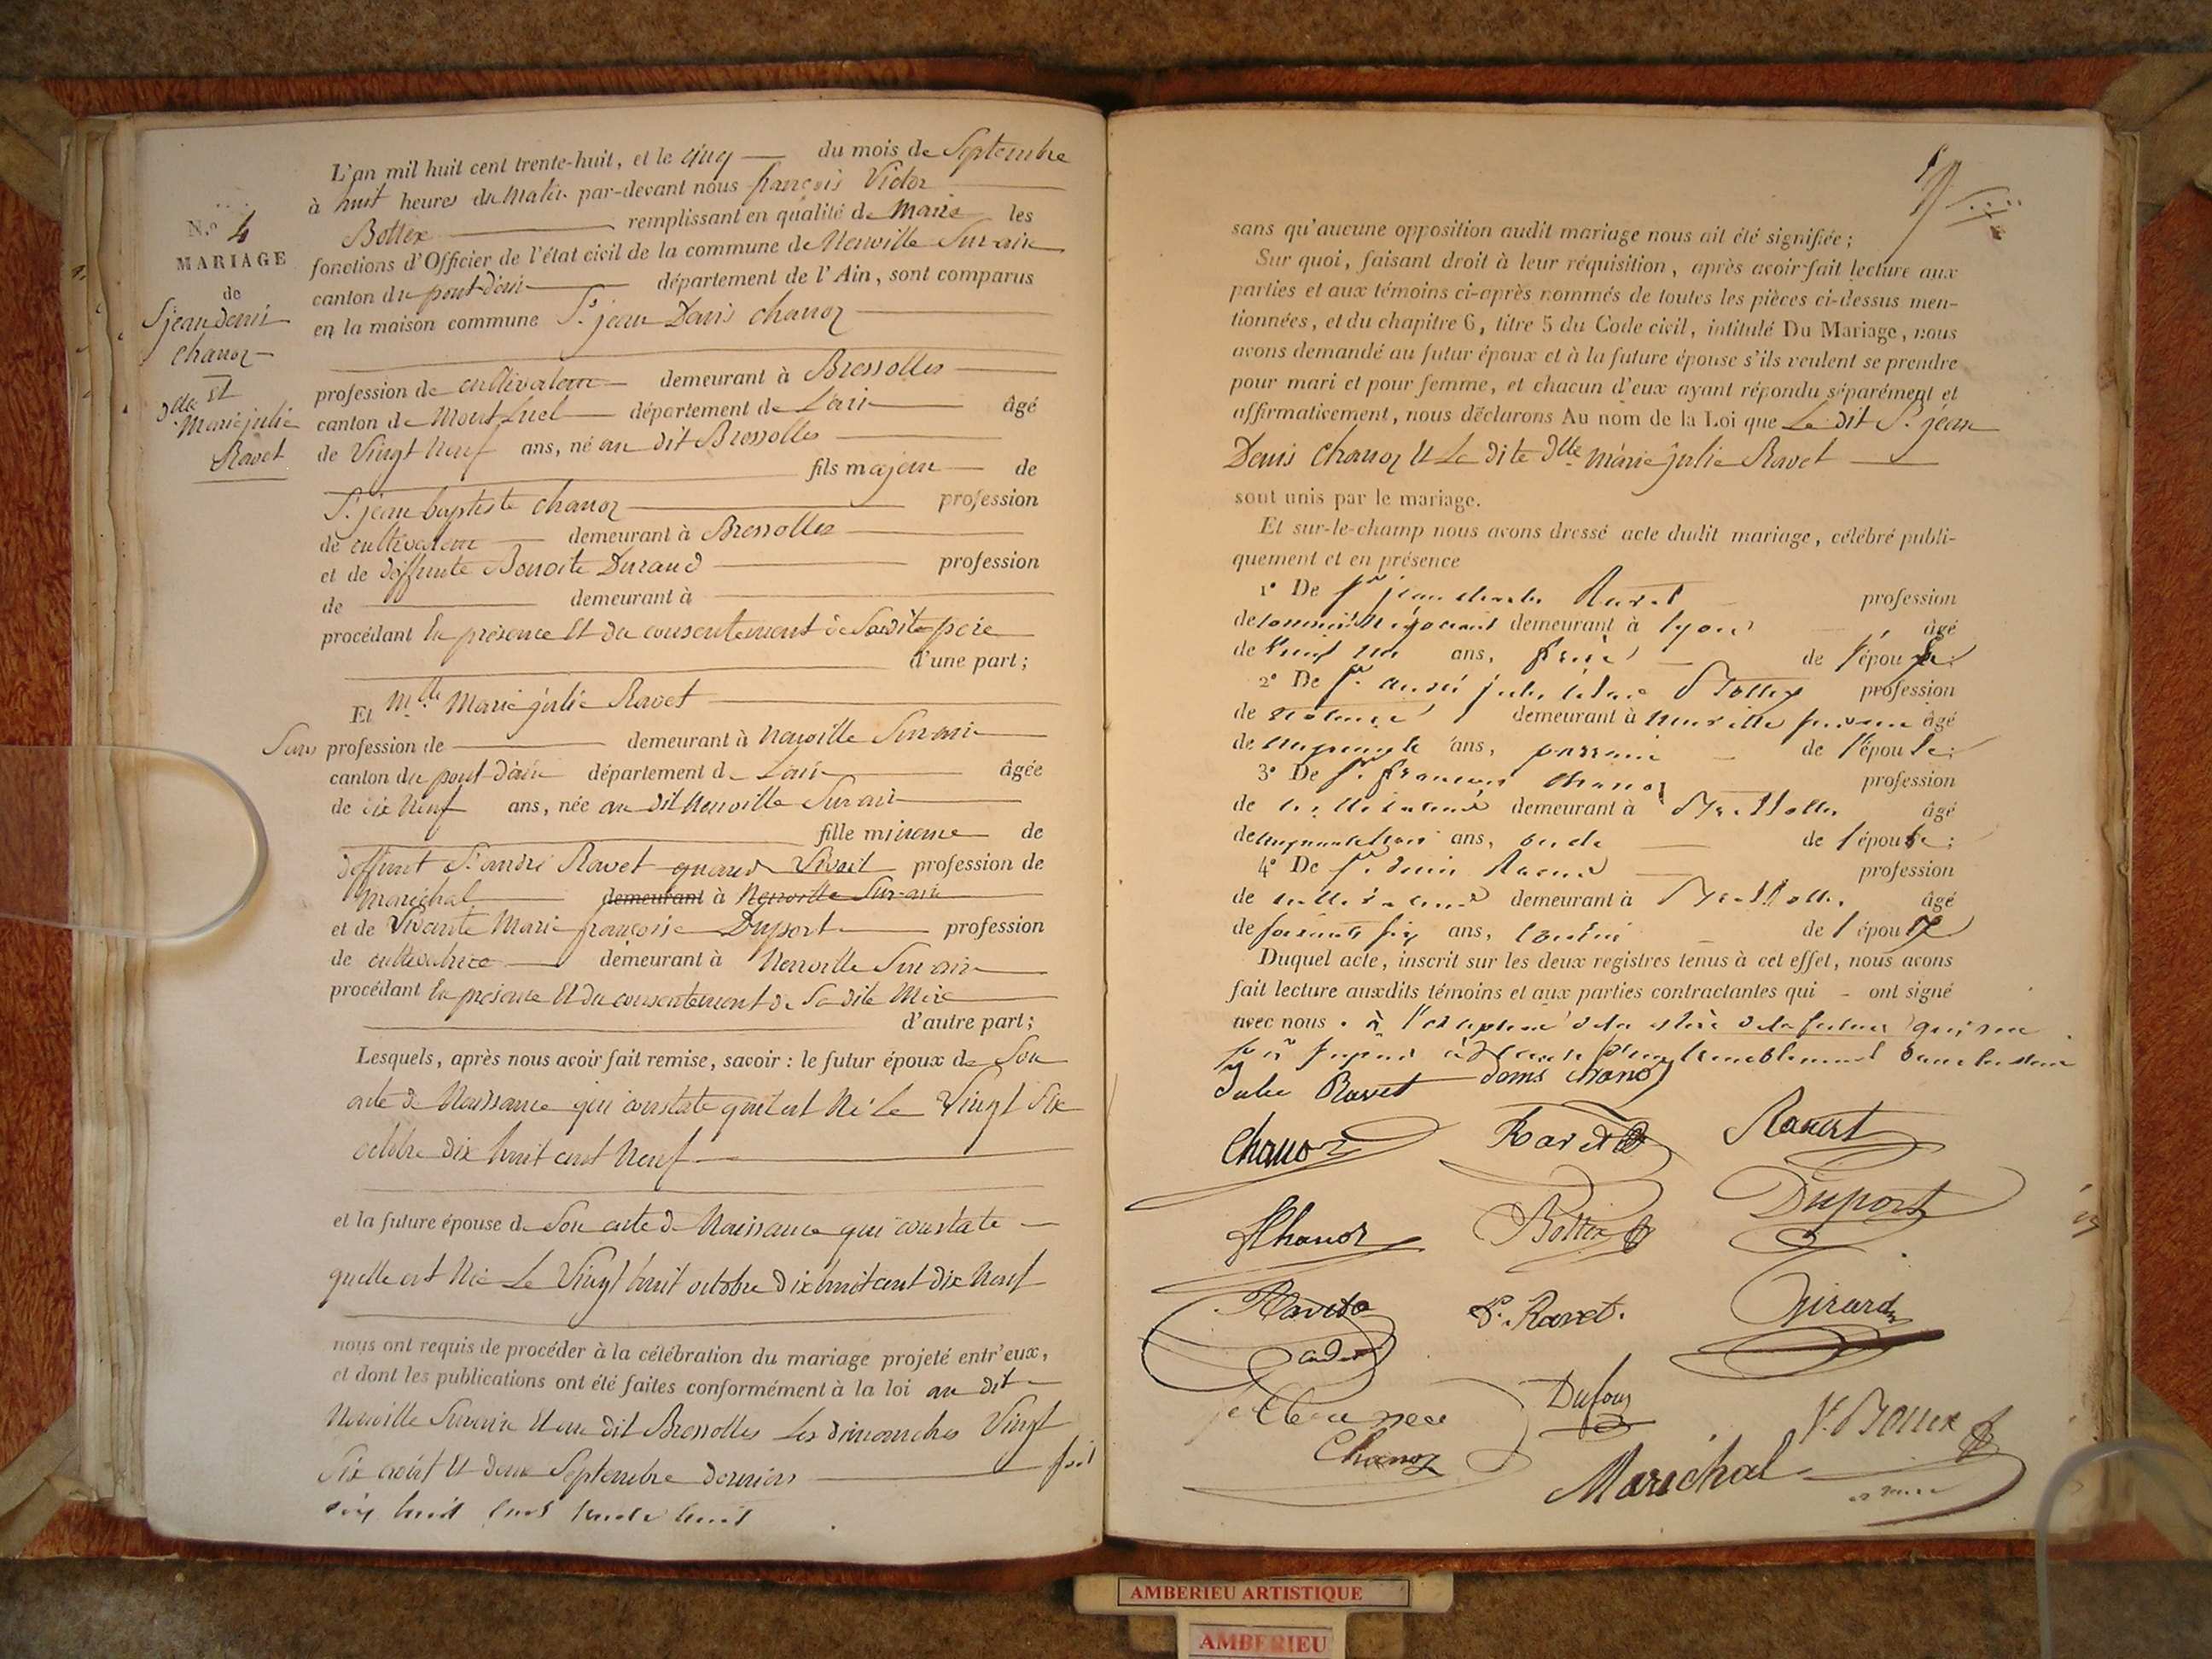 N.º 4
MARIAGE
de
S. jean denis
chanoz
et
dlle
Marie julie
Ravet
L'an mil huit cent trente-huit, et le cinq du mois de Septembre
à huit heures du Matin par-devant nous françois Victor
Bottex remplissant en qualité de Maire les
fonctions d'Officier de l'état civil de la commune de Neuville Sur ain
canton du pont-dain département de l'Ain, sont comparus
en la maison commune S.r jean Denis chanoz
profession de cultivateur demeurant à Bressolles
canton de Mont Luel département de L'ain âgé
de Vingt Neuf ans, né au dit Bressolles
fils majeur de
S. jean baptiste chanoz profession
de cultivateur demeurant à Bressolles
et de deffunte Benoite Durand profession
de demeurant à
procédant En présence Et du consentement de Sondit père
d'une part;
Et Mlle Marie julie Ravet
Sans profession de demeurant à Neuville Sur-ain
canton du pont-d'ain département de L'ain âgée
de dix Neuf ans, née au dit Neuville Sur ain
fille mineure de
deffunt S. andré Ravet quand Vivait profession de
Maréchal demeurant à Neuville Sur-ain
et de Vivante Marie françoise Duport profession
de cultivatrice demeurant à Neuville Sur ain
procédant En présence Et du consentement de Sa dite Mère
d'autre part;
Lesquels, après nous avoir fait remise, savoir : le futur époux de Son
acte de Naissance qui constate qu'il est Né Le Vingt Six
octobre dix huit cent Neuf
et la future épouse de Son acte de Naissance qui constate
quelle est Née Le Vingt huit octobre dix huit cent dix Neuf
nous ont requis de procéder à la célébration du mariage projeté entr'eux,
et dont les publications ont été faites conformément à la loi au dit
Neuville Sur ain Et au dit Bressolles Les dimanches Vingt
Six août Et deux Septembre derniers fait
dix huit cent trente huit
sans qu'aucune opposition audit mariage nous ait été signifiée;
Sur quoi, faisant droit à leur réquisition, après avoir fait lecture aux
parties et aux témoins ci-après nommés de toutes les pièces ci-dessus men-
tionnées, et du chapitre 6, titre 5 du Code civil, intitulé Du Mariage, nous
avons demandé au futur époux et à la future épouse s'ils veulent se prendre
pour mari et pour femme, et chacun d'eux ayant répondu séparément et
affirmativement, nous déclarons Au nom de la Loi que Le dit S. jean
Denis chanoz Et La dite dlle marie julie Ravet
sont unis par le mariage.
Et sur-le-champ nous avons dressé acte dudit mariage, célébré publi-
quement et en présence
1º De S.r jean Ravet profession
de négociant demeurant à lyon âgé
de vingt un ans, frère de l'épouse;
2º De S.r andré jules Bottex profession
de notaire demeurant à neuville sur ain âgé
de ans, parrain de l'épouse;
3º De S.r françois chanoz profession
de cultivateur demeurant à Bressolles âgé
de cinquante trois ans, oncle de l'époux;
4º De S.r profession
de cultivateur demeurant à Bressolles âgé
de soixante six ans, cousin de l'époux
Duquel acte, inscrit sur les deux registres tenus à cet effet, nous avons
fait lecture auxdits témoins et aux parties contractantes qui ont signé
avec nous. à l'exception de la mère de la future qui ne
tremblement dans la main
Julie Ravet denis chanoz
Chanoz Ravet Ravet
Chanoz Bottex Duport
Ravet P. Ravet. Girard
cadet
Dufour
Chanoz
V. Bottex
Maréchal
maire
AMBERIEU ARTISTIQUE
AMBERIEU